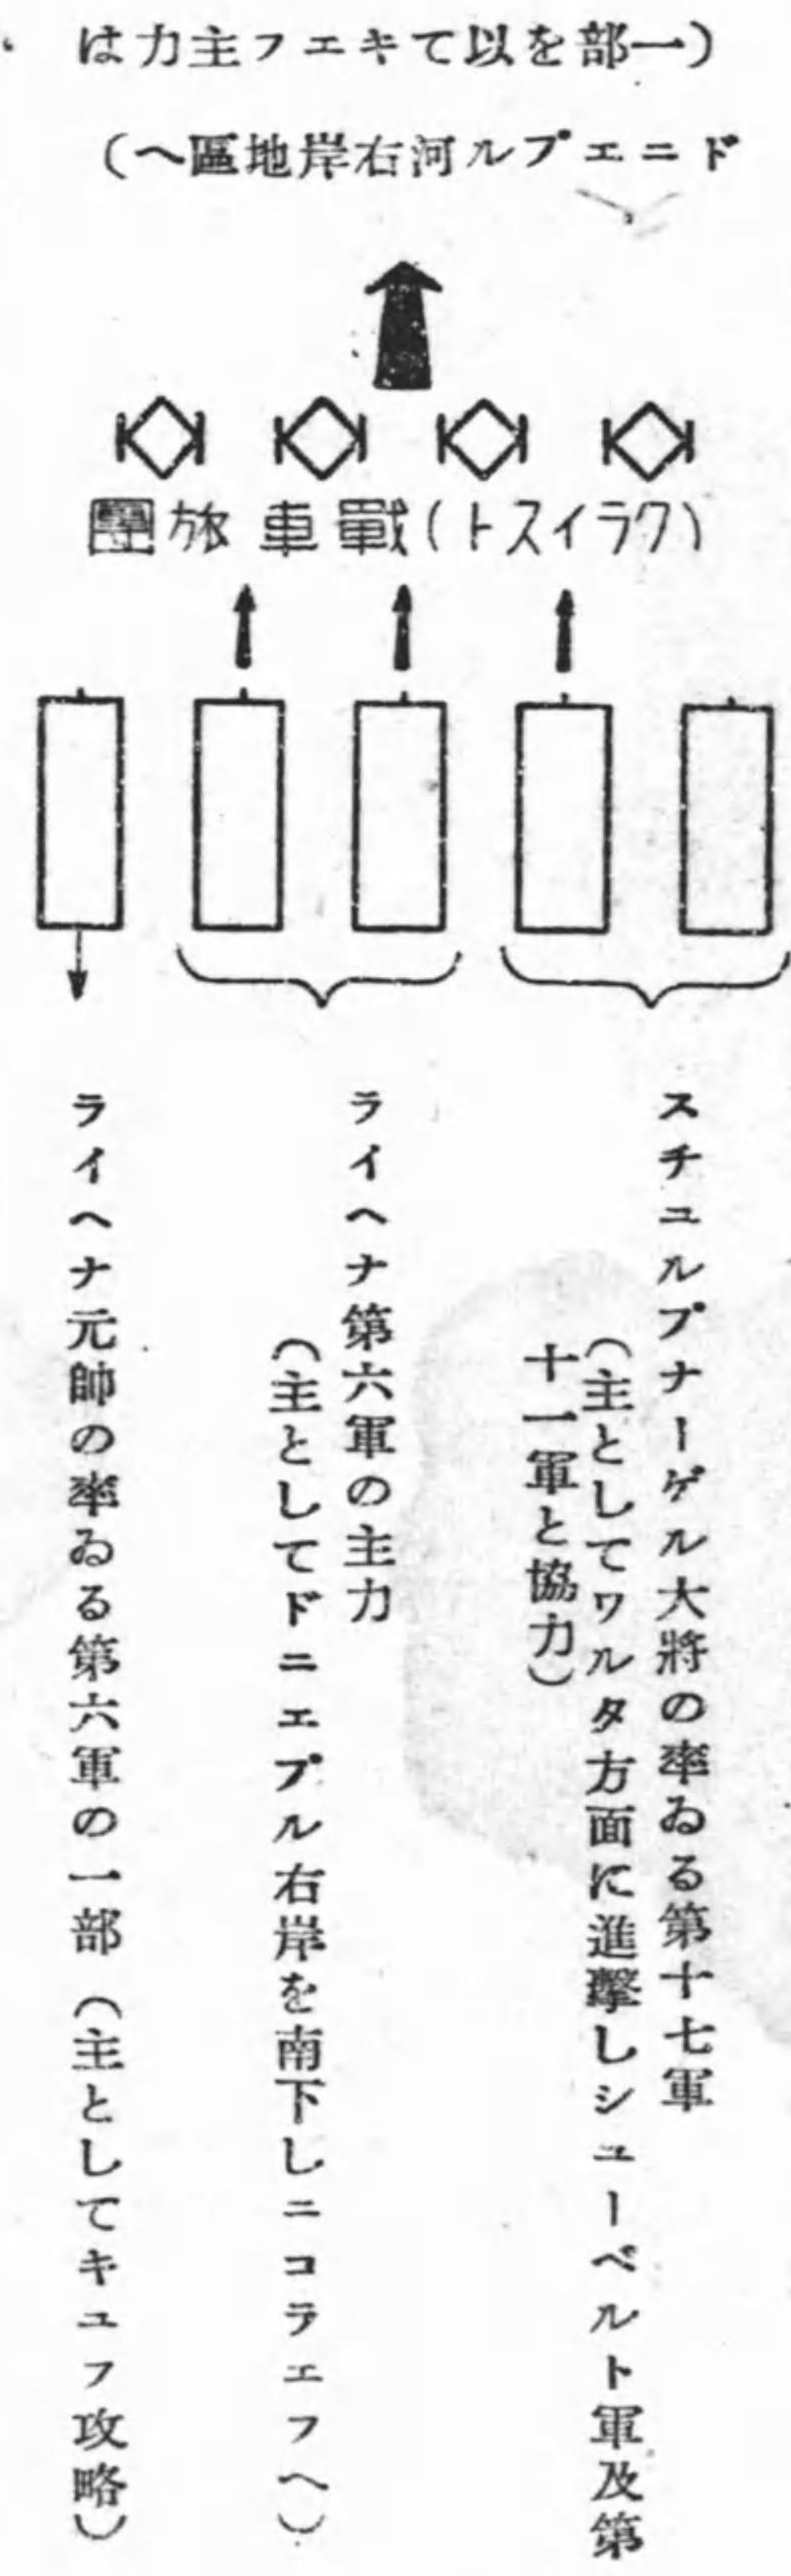 (一部を以てキエフ主力は
ドニエプル河右岸地區へ)
(クライスト)戰車旅團
スチユルプナーゲル大將の率ゐる第十七軍
(主としてワルタ方面に進擊しシユーベルト軍及第
十一軍と協力)
ライヘナ第六軍の主力
(主としてドニエプル右岸を南下しニコラエフへ)
ライヘナ元帥の率ゐる第六軍の一部(主としてキユフ攻略)